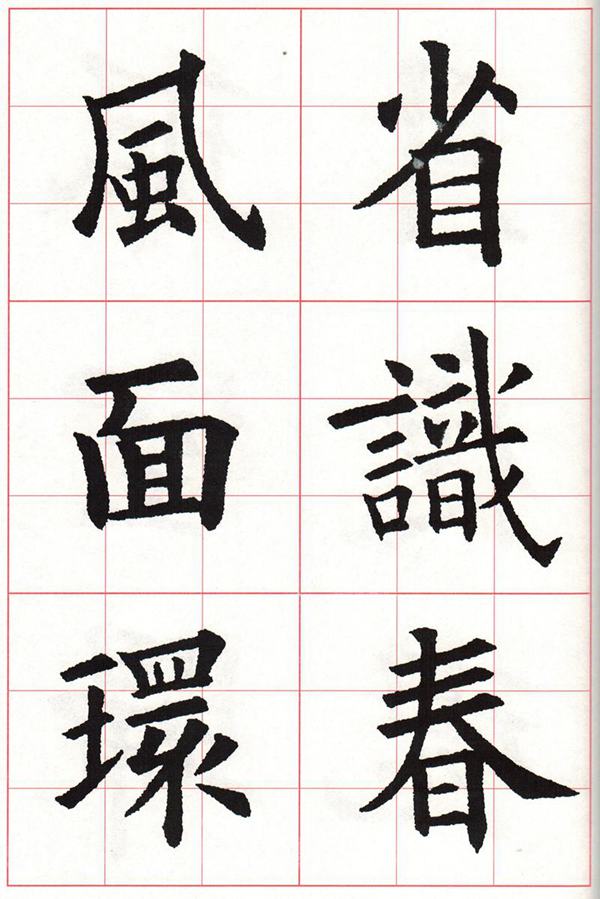 省識春
風面環